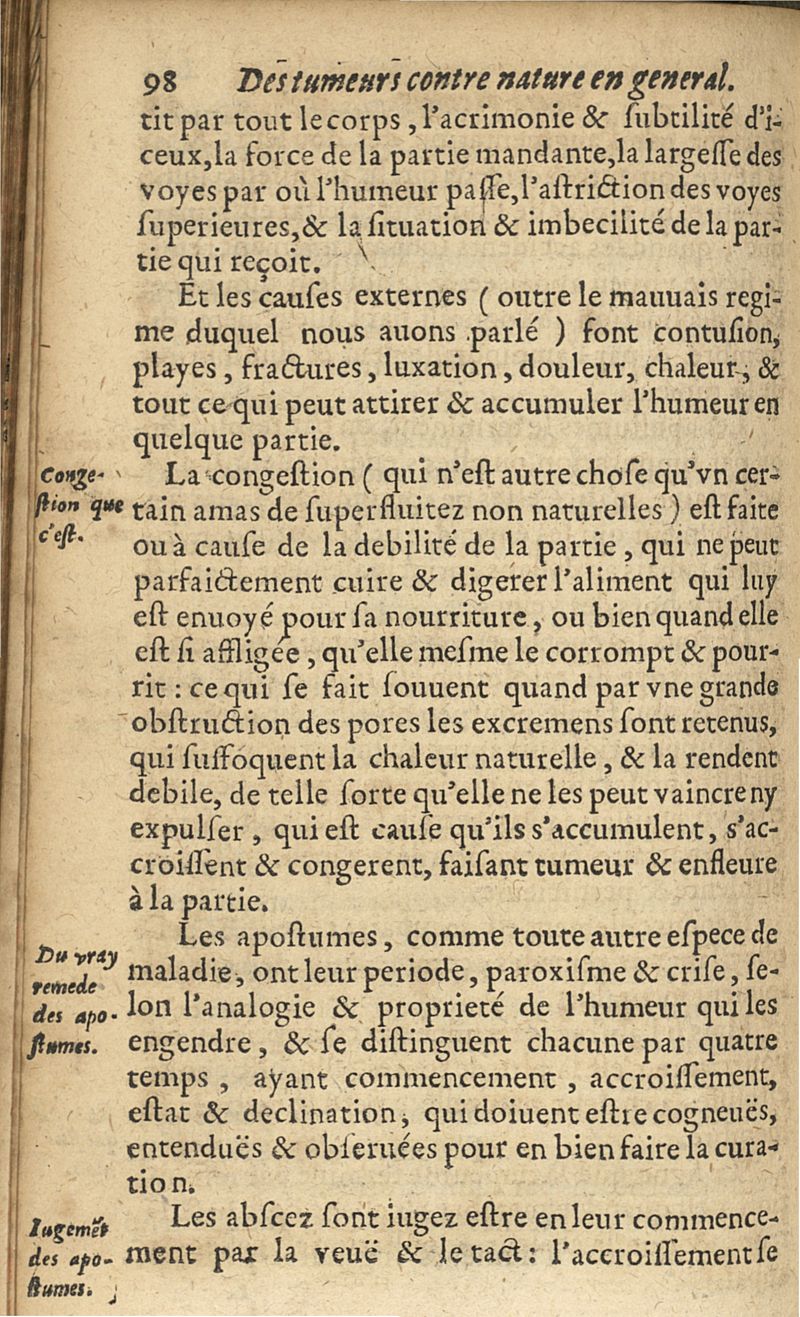 98 Des tumeurs contre nature en general.
tit par tout le corps, l'acrimonie & ſubtilité d'i-
ceux, la force de la partie mandante, la largeſſe des
voyes par où l'humeur paſſe, l'aſtriction des voyes
ſuperieures, & la ſituation & imbecilité de la par-
tie qui reçoit.
Et les cauſes externes ( outre le mauuais regi-
me duquel nous auons parlé ) ſont contuſion,
playes, fractures, luxation, douleur, chaleur, &
tout ce qui peut attirer & accumuler l'humeur en
quelque partie.
Conge-
ſtion que
c'eſt.
La congeſtion ( qui n'eſt autre choſe qu'vn cer-
tain amas de ſuperfluitez non naturelles ) eſt faite
ou à cauſe de la debilité de la partie, qui ne peut
parfaictement cuire & digerer l'aliment qui luy
eſt enuoyé pour ſa nourriture, ou bien quand elle
eſt ſi affligée, qu'elle meſme le corrompt & pour-
rit : ce qui ſe fait ſouuent quand par vne grande
obſtruction des pores les excremens ſont retenus,
qui ſuffoquent la chaleur naturelle, & la rendent
debile, de telle ſorte qu'elle ne les peut vaincre ny
expulſer, qui eſt cauſe qu'ils s'accumulent, s'ac-
croiſſent & congerent, faiſant tumeur & enfleure
à la partie.
Du vray
remede
des apo-
ſtumes.
Les apoſtumes, comme toute autre eſpece de
maladie, ont leur periode, paroxiſme & criſe, ſe-
lon l'analogie & proprieté de l'humeur qui les
engendre, & ſe diſtinguent chacune par quatre
temps, ayant commencement, accroiſſement,
eſtat & declination, qui doiuent eſtre cogneuës,
entenduës & obſeruées pour en bien faire la cura-
tion.
Iugemẽt
des apo-
ſtumes.
Les abſcez ſont iugez eſtre en leur commence-
ment par la veuë & le tact : l'accroiſſement ſe